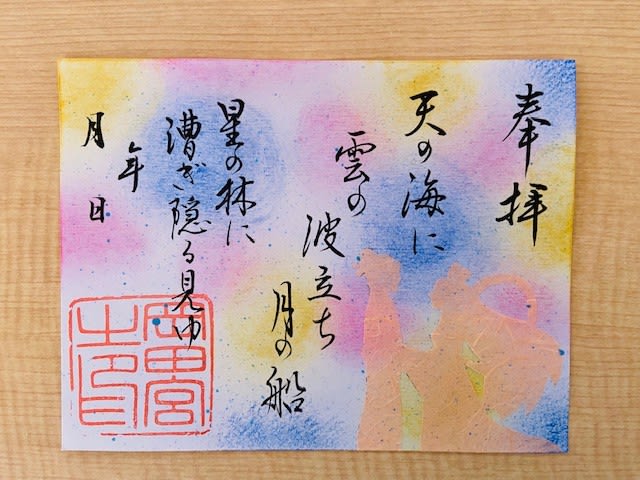 奉拝
天の海に
雲の
波立ち
月の船
星の林に
漕ぎ隠る見ゆ
年
月日
岡田宮
之印